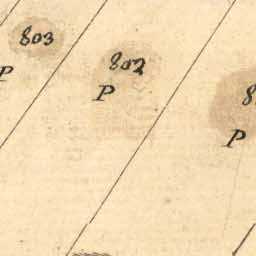 803
P
802
P
8
P